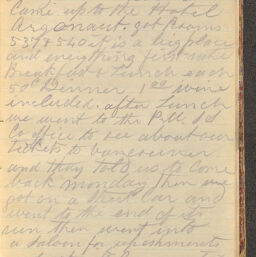 Came up to the Hotel
Argonaut. got Rooms
539 & 540 it is a big place
and everything first rate
Breakfast & Lunch each
50¢ Dinner 1.00 wine
included. after Lunch
we went to the P.M. SS
Co office to see about our
tickets to Vancouver
and they told us to come
back monday, then we
got on a Street Car and
went to the end of its
run then went into
a saloon for refreshments